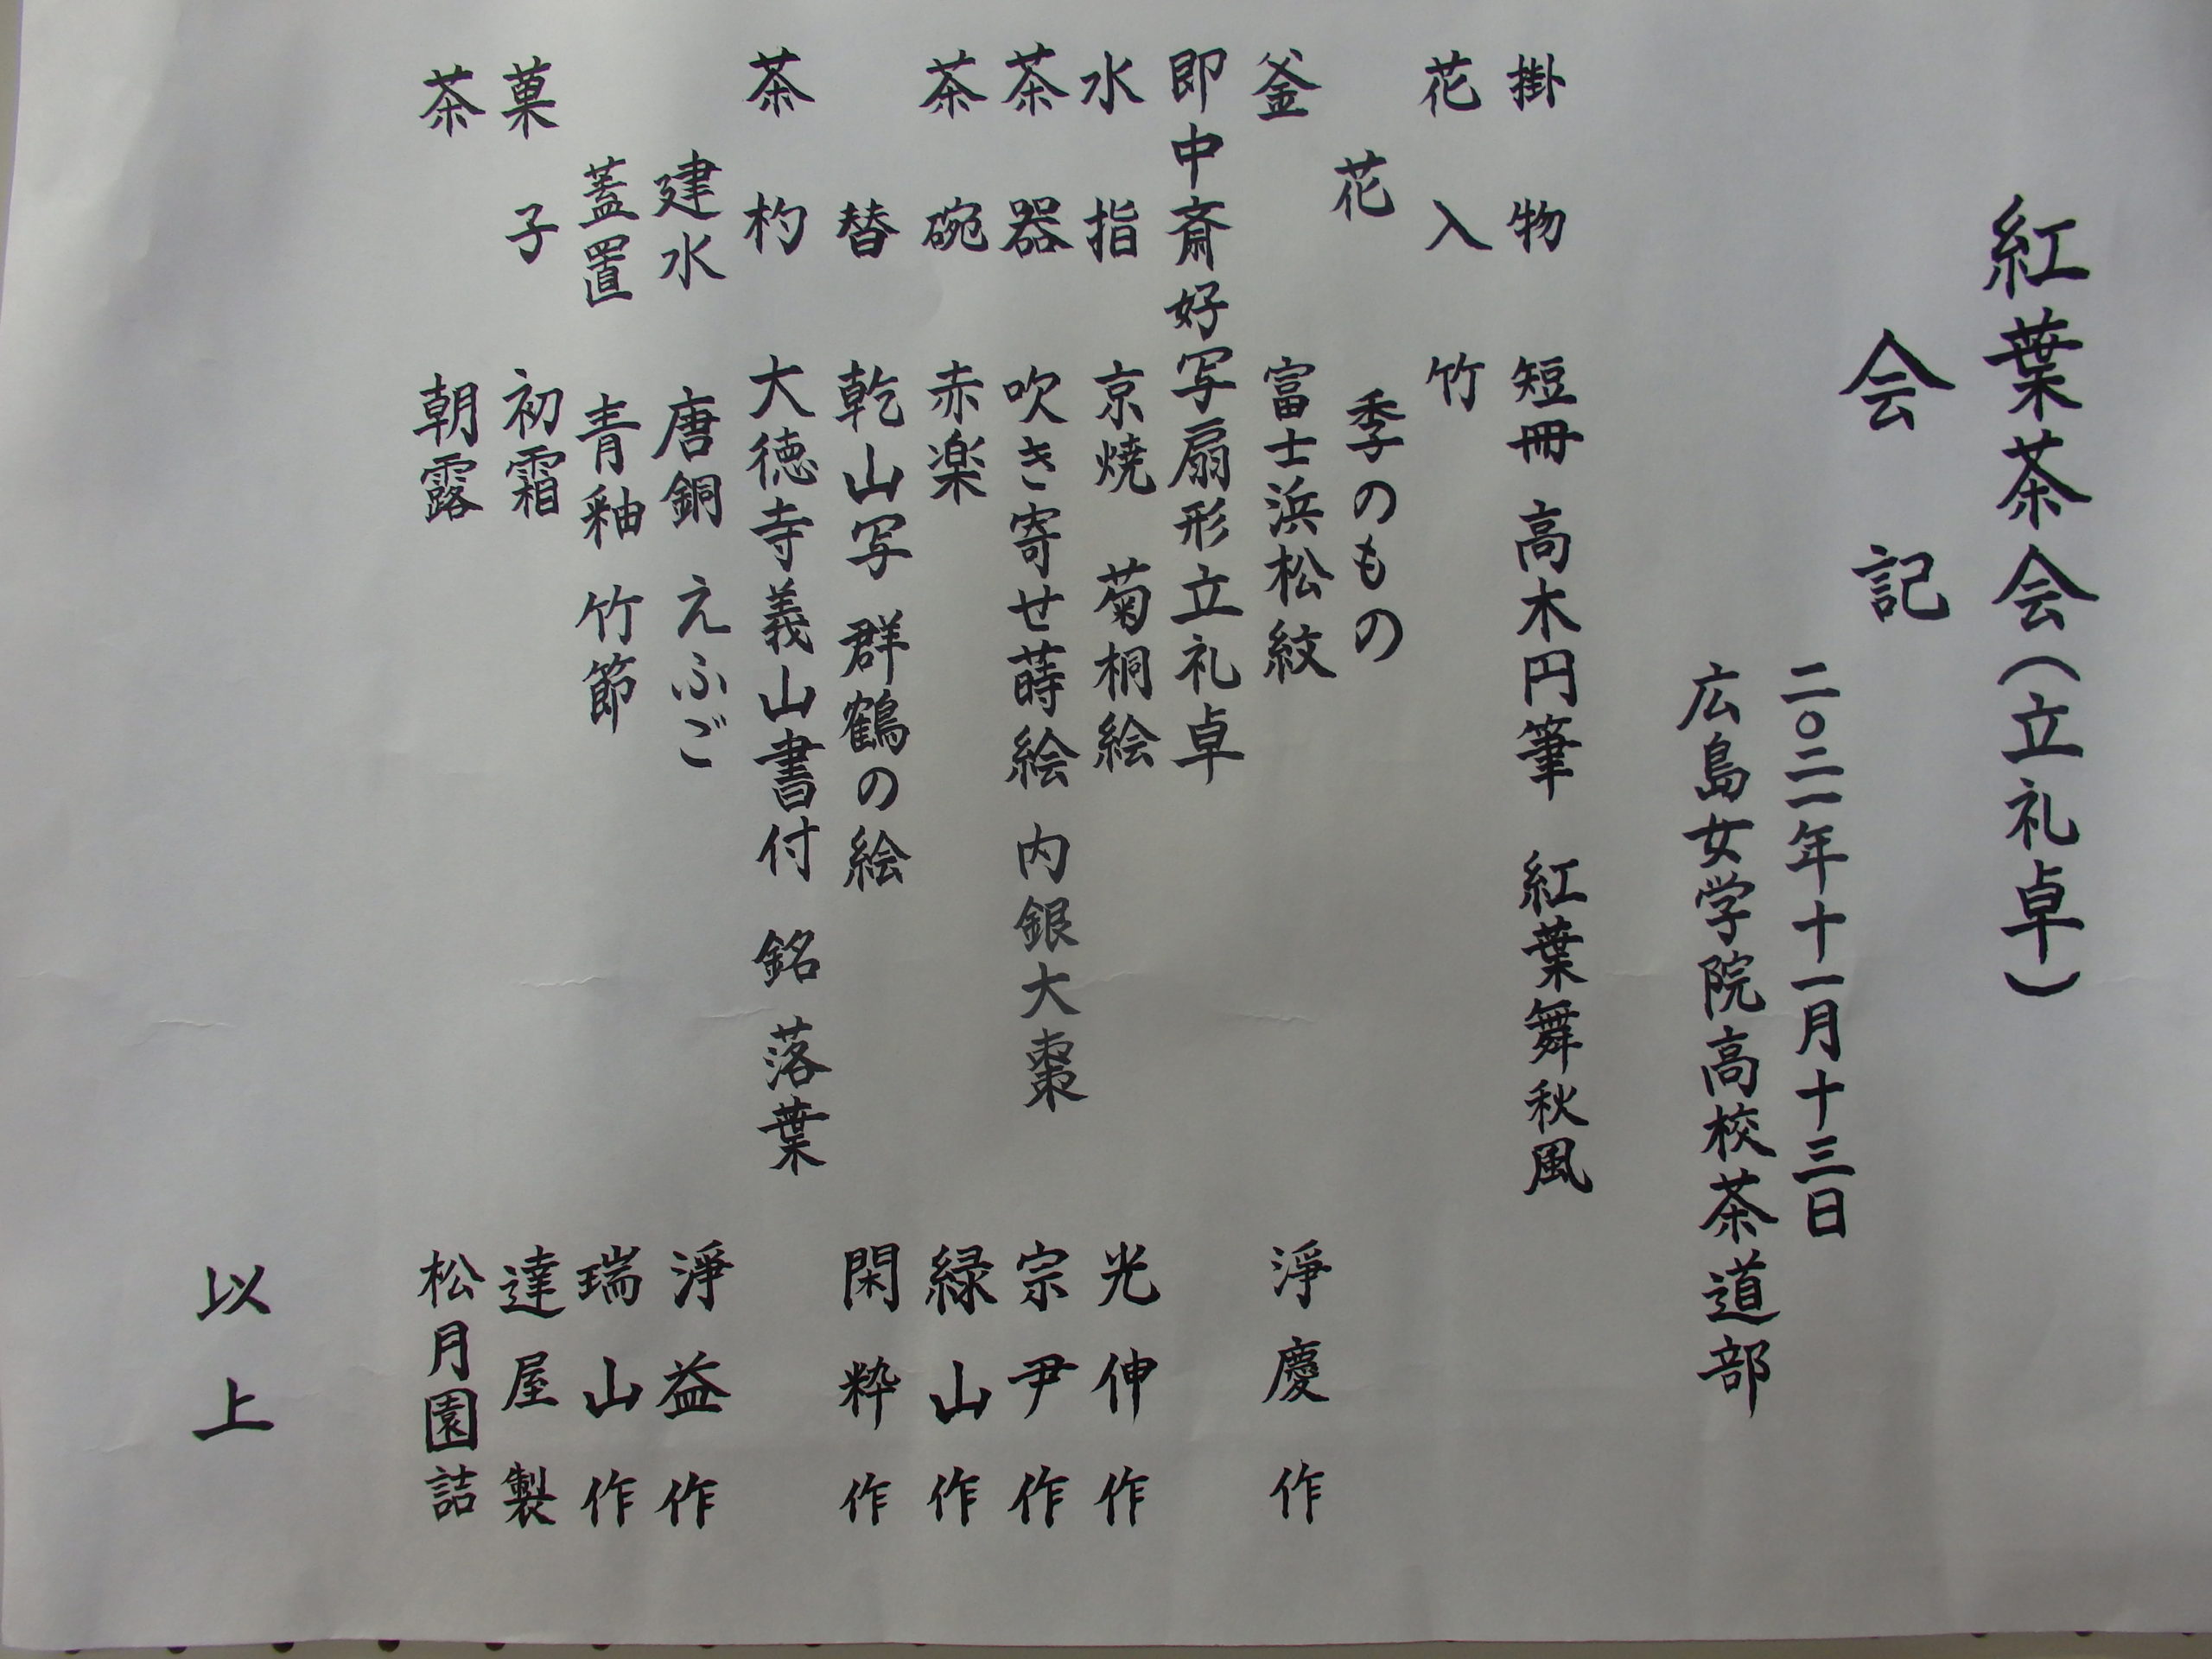 紅葉茶会(立礼卓)
会記
二〇二一年十一月十三日
広島女学院高校茶道部
掛物 短冊 高木円筆 紅葉舞秋風
花入 竹
花 季のもの
釜 富士浜松紋 淨慶作
即中斎好写扇形立礼卓
水指 京焼 菊桐絵 光伸作
茶器 吹き寄せ蒔絵 内銀大棗 宗尹作
茶碗 赤楽 緑山作
替 乾山写 群鶴の絵 閑粋作
茶杓 大徳寺義山書付 銘 落葉
建水 唐銅 えふご 淨益作
蓋置 青釉 竹節 瑞山作
菓子 初霜 達屋製
茶 朝露 松月園詰
以上